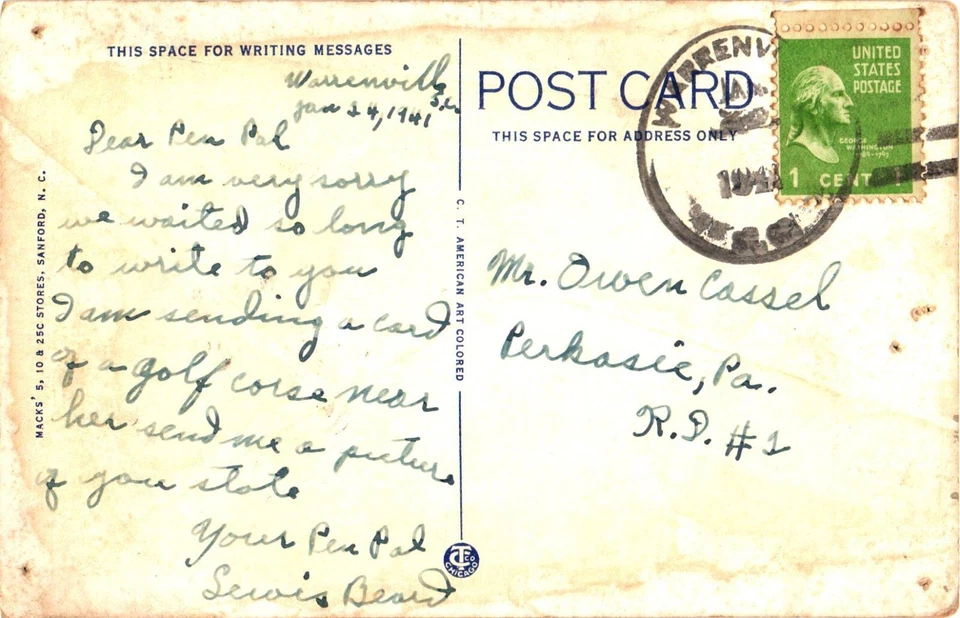 THIS SPACE FOR WRITING MESSAGES
Warrenville
S.C.
Jan 24, 1941
Dear Pen Pal
I am very sorry
we waited so long
to write to you
I am sending a card
of a golf corse near
her send me a picture
of you state
Your Pen Pal
Lewis Beard
MACKS' 5, 10 & 25C STORES, SANFORD, N. C.
C. T. AMERICAN ART COLORED
CTC
CHICAGO
POST CARD
THIS SPACE FOR ADDRESS ONLY
WARRENV
JAN
1941
S.C.
UNITED
STATES
POSTAGE
GEORGE
WASHINGTON
1 CENT
Mr. Owen Cassel
Perkasie, Pa.
R.D. #2